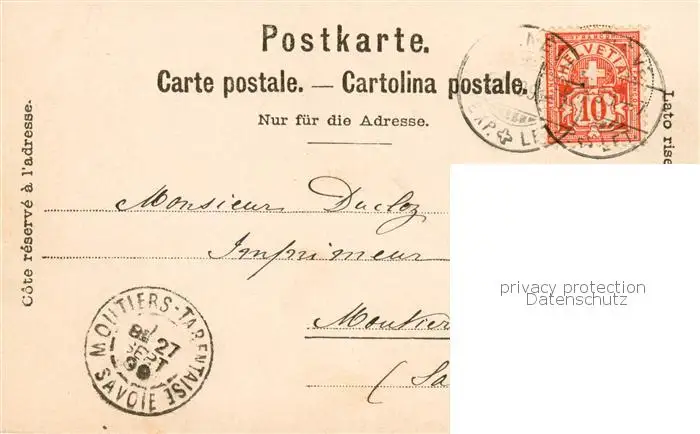 Postkarte.
Carte postale. — Cartolina postale.
Nur für die Adresse.
Côte réservé à l'adresse.
Lato rise
FRANCO
HELVETIA
10
EXP. LET
Monsieur Ducloz
Imprimeur
Moutier
(Sa
MOUTIERS-TARENTAISE
27
SEPT
SAVOIE
privacy protection
Datenschutz